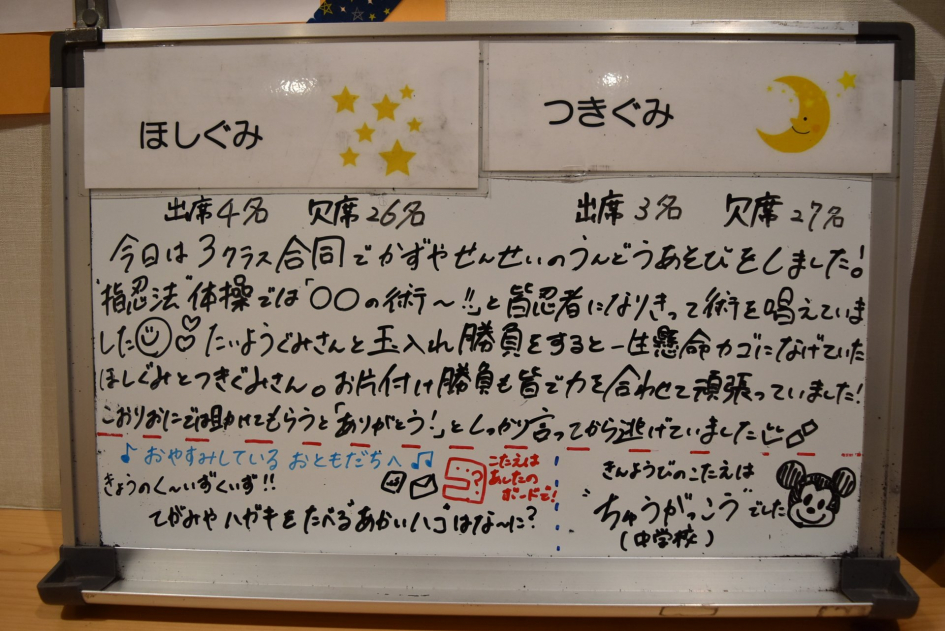 ほしぐみ
つきぐみ
出席4名 欠席26名
出席3名 欠席27名
今日は3クラス合同でかずやせんせいのうんどうあそびをしました!
"指忍法"体操では「○○の術〜!!」と皆忍者になりきって術を唱えていま
した たいようぐみさんと玉入れ勝負をすると一生懸命カゴになげていた
ほしぐみとつきぐみさん。お片付け勝負も皆で力を合わせて頑張っていました!
こおりおにでは助けてもらうと「ありがとう!」としっかり言ってから逃げていました
♪おやすみしているおともだちへ♫
きょうのく〜いずくいず!!
こたえは
あしたの
ボードで!
てがみやハガキをたべる"あかいハコ"はな〜に?
きんようびのこたえは
"ちゅうがっこう"でした
(中学校)